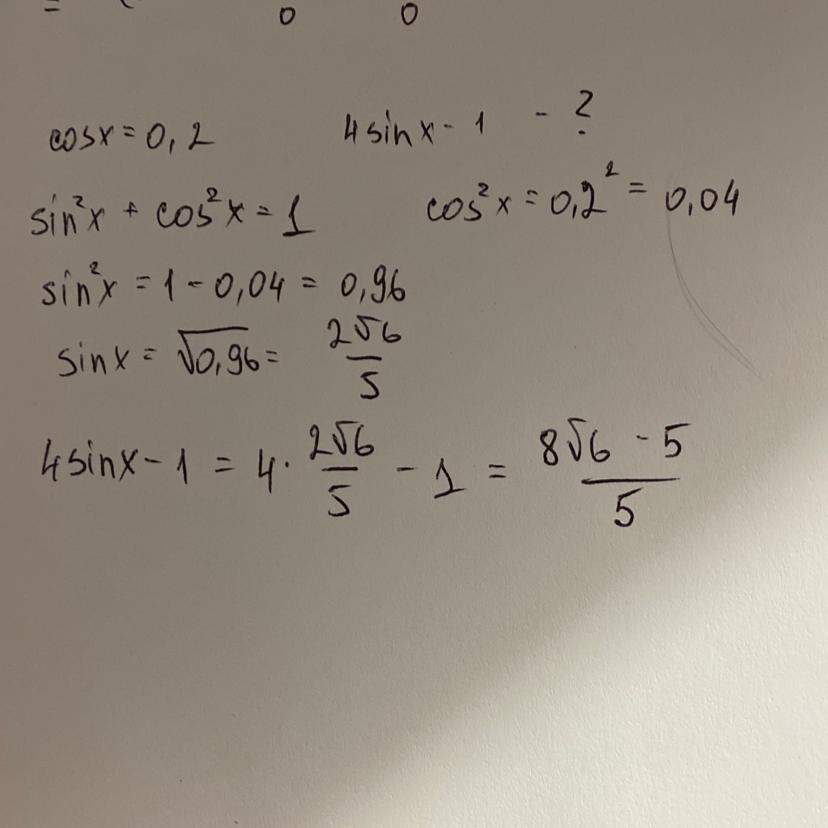 = ( 0 0
cosx = 0,2 4sinx - 1 - ?
sin²x + cos²x = 1 cos²x = 0,2² = 0,04
sin²x = 1 - 0,04 = 0,96
sinx = √0,96 = 2√6/5
4sinx - 1 = 4 · 2√6/5 - 1 = (8√6 - 5)/5